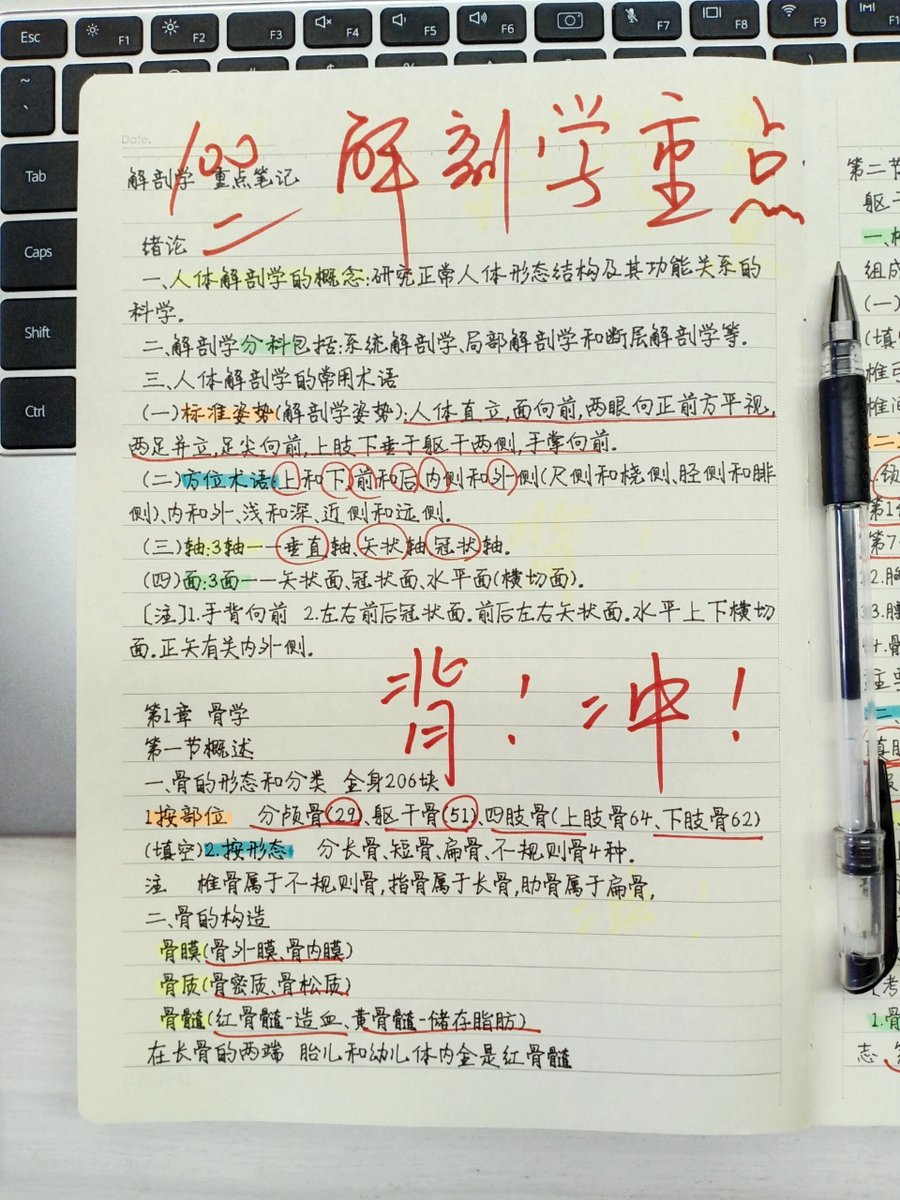 Esc
F1
F2
F3
F4
F5
F6
F7
F8
F9
Tab
Caps
Shift
Ctrl
Date.
100
解剖学重点
解剖学 重点笔记
绪论
一、人体解剖学的概念:研究正常人体形态结构及其功能关系的
科学.
二、解剖学分科包括:系统解剖学、局部解剖学和断层解剖学等.
三、人体解剖学的常用术语
(一)标准姿势(解剖学姿势):人体直立,面向前,两眼向正前方平视,
两足并立,足尖向前,上肢下垂于躯干两侧,手掌向前.
(二)方位术语:上和下,前和后,内侧和外侧(尺侧和桡侧、胫侧和腓
侧)、内和外、浅和深、近侧和远侧.
(三)轴:3轴——垂直轴、矢状轴、冠状轴.
(四)面:3面——矢状面、冠状面、水平面(横切面).
[注]1.手背向前 2.左右前后冠状面.前后左右矢状面.水平上下横切
面.正矢有关内外侧.
背！冲！
第1章 骨学
第一节概述
一、骨的形态和分类 全身206块
1按部位 分颅骨(29)、躯干骨(51)、四肢骨(上肢骨64、下肢骨62)
(填空)2.按形态 分长骨、短骨、扁骨、不规则骨4种.
注 椎骨属于不规则骨,指骨属于长骨,肋骨属于扁骨,
二、骨的构造
骨膜(骨外膜、骨内膜)
骨质(骨密质、骨松质)
骨髓(红骨髓-造血、黄骨髓-储存脂肪)
在长骨的两端 胎儿和幼儿体内全是红骨髓
第二节
躯干
一、
组成
(一)
(填
椎弓
椎间
(二
第1
第7
2.胸
3.腰
4.骶
主要
二、
1.骨
志